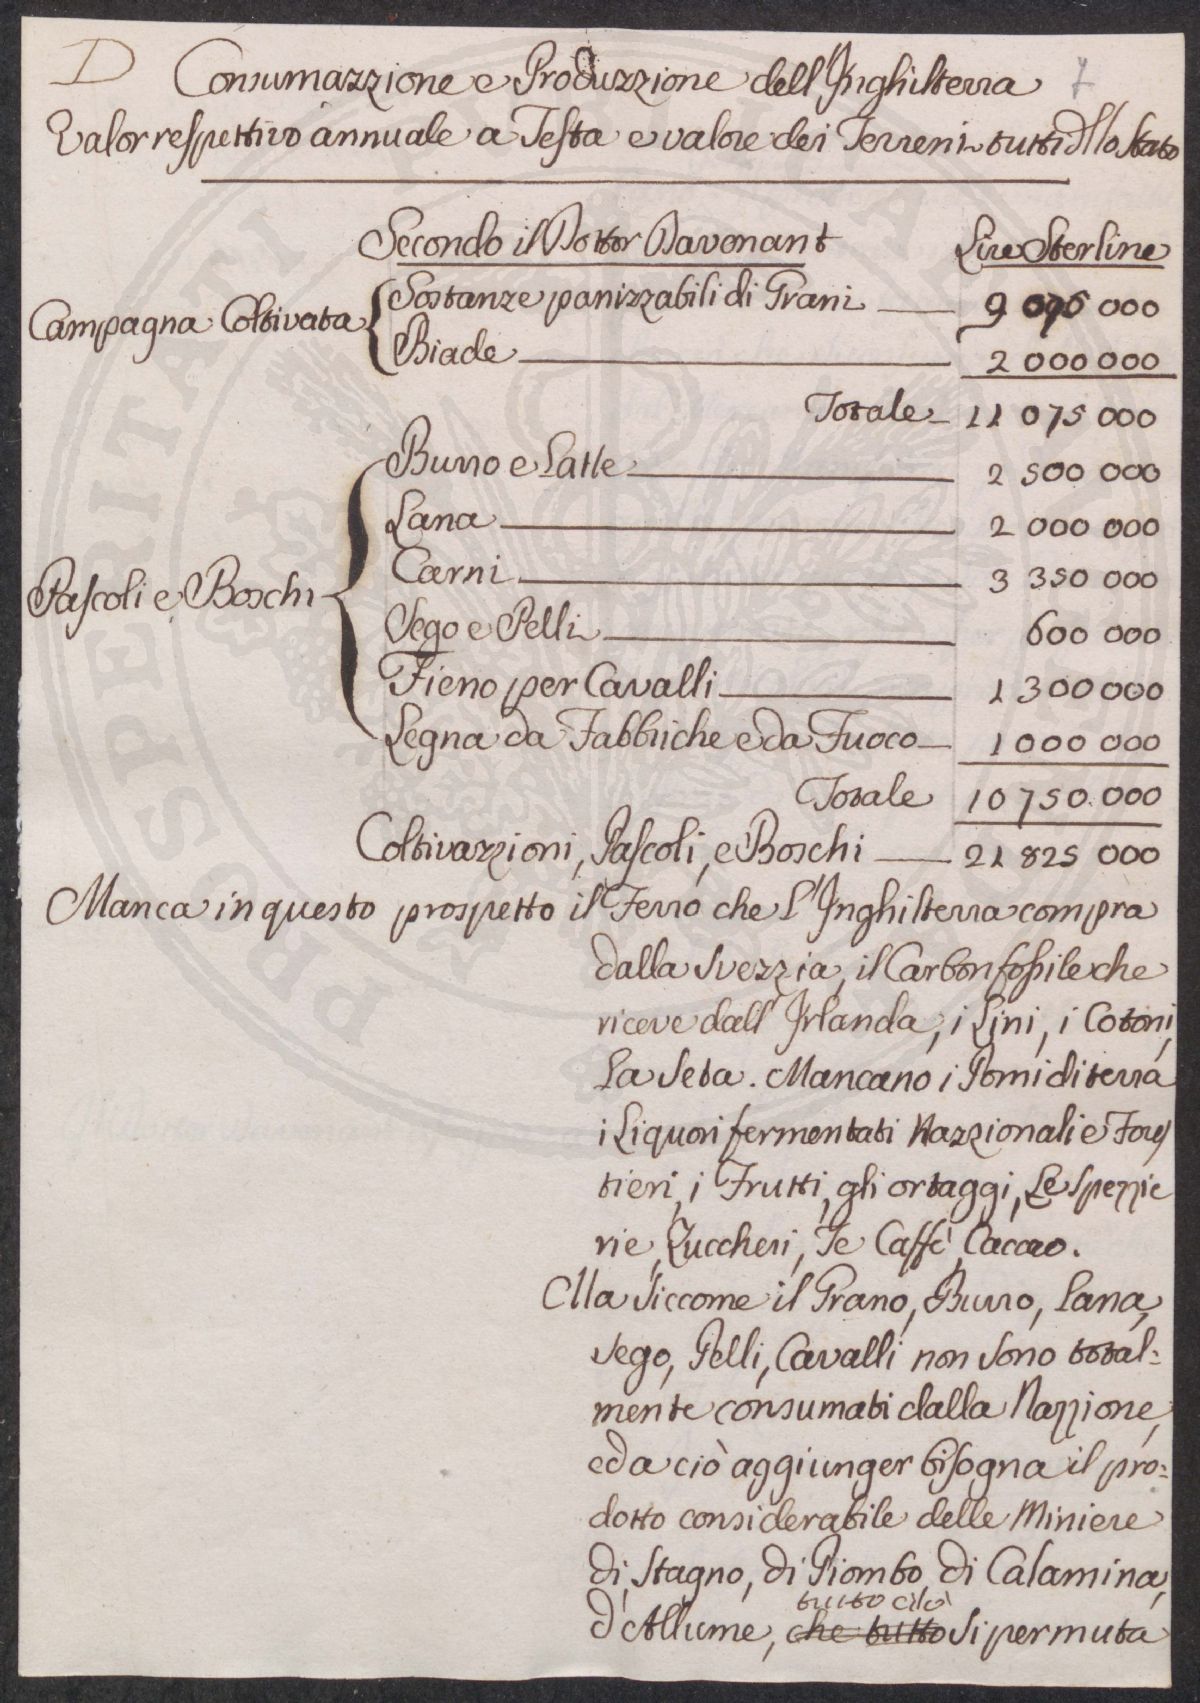 D Consumazzione e Produzzione dell'Inghilterra 7
Valor respettivo annuale a Testa e valore dei Terreni tutti dllo stato
Secondo il Dottor Davenant Lire Sterline
Campagna Coltivata Sostanze panizzabili di Grani 9 075 000
Biade 2 000 000
Totale 11 075 000
Burro e Latte 2 500 000
Lana 2 000 000
Carni 3 350 000
Pascoli e Boschi
Sego e Pelli 600 000
Fieno per Cavalli 1 300 000
Legna da Fabbriche e da Fuoco 1 000 000
Totale 10 750 000
Coltivazzioni, Pascoli, e Boschi 21 825 000
Manca in questo prospetto il Ferro che l'Inghilterra compra
dalla Svezzia, il Carbon fossile che
riceve dall'Irlanda, i Lini, i Cotoni,
la Seta. Mancano i Pomi di terra
i Liquori fermentati Nazzionali e Fores
tieri, i Frutti, gli ortaggi, le spezzie
rie, Zuccheri, Te Caffè, Caccao.
Ma siccome il Grano, Burro, Lana,
Sego, Pelli, Cavalli non sono total=
mente consumati dalla Nazzione,
e da ciò aggiunger bisogna il pro=
dotto considerabile delle Miniere
di Stagno, di Piombo di Calamina,
tutto ciò
d'Allume, che tutto si permuta
PROSPERITATI